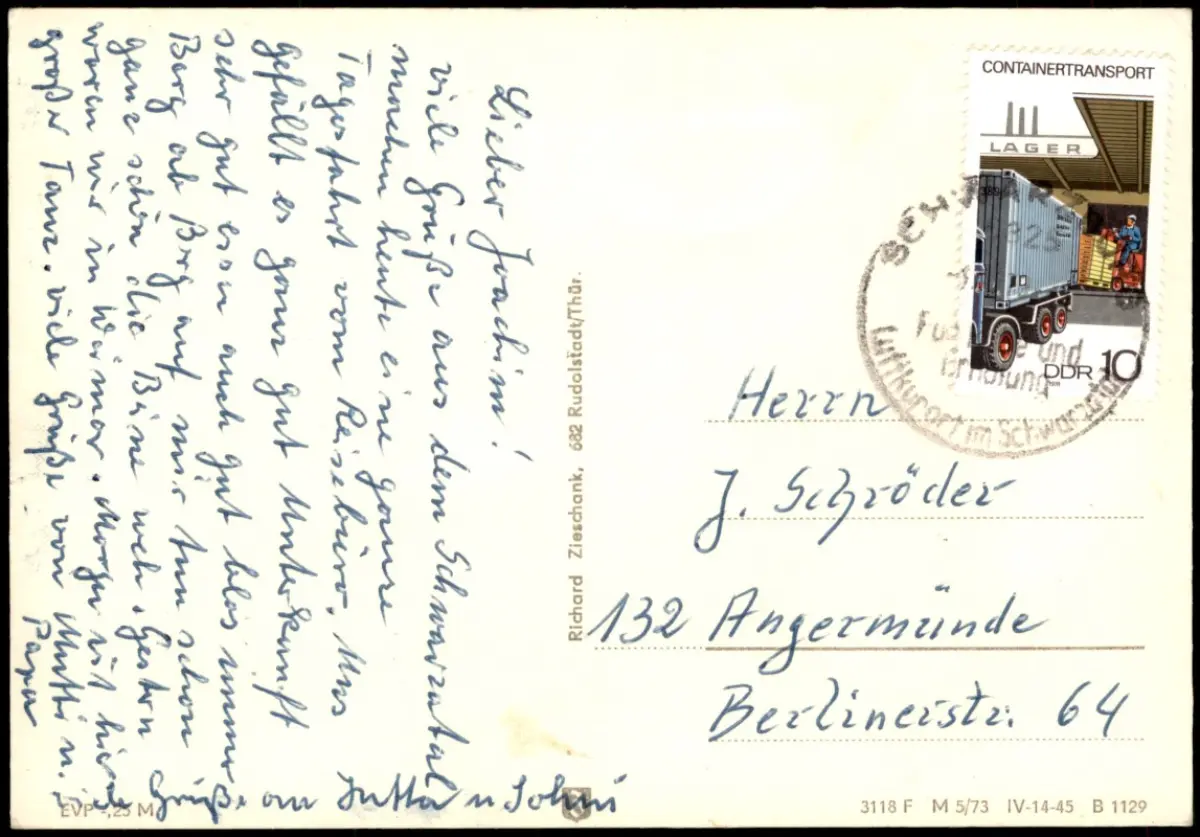 Lieber Joachim!
viele Grüße aus dem Schwarzatal
machen heute eine ganze
Tagesfahrt vom Reisebüro, Uns
gefällt es ganz gut Unterkunft
sehr gut essen auch gut blos immer
Berg ab Berg auf mir tun schon
ganz schön die Beine weh. Gestern
waren wir in Weimar. Morgen ist hier
großer Tanz. viele Grüße von Mutti u.
Papa
Grüße an Jutta u
Richard Zieschank, 682 Rudolstadt/Thür.
CONTAINERTRANSPORT
LAGER
DDR 10
und
Erholung
Luftkurort im Schwarzatal
Herrn
J. Schröder
132 Angermünde
Berlinerstr. 64
EVP -,25 M
3118 F M 5/73 IV-14-45 B 1129